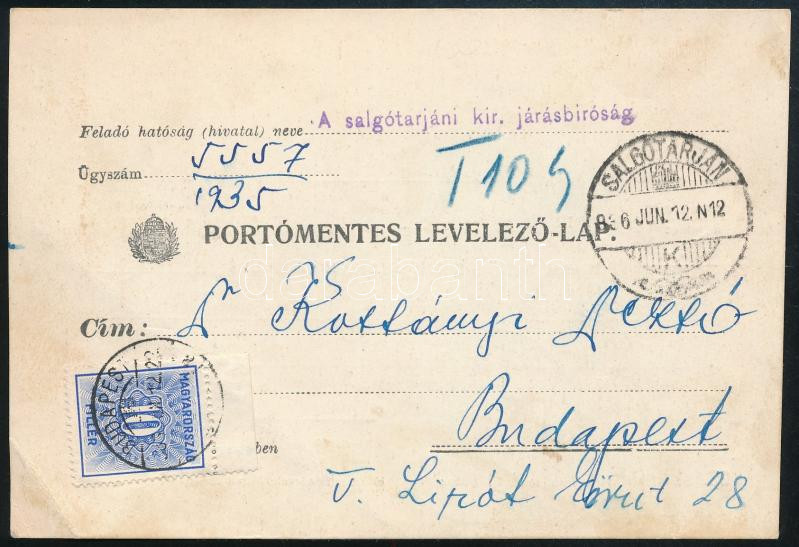 A salgótarjáni kir. járásbiróság
Feladó hatóság (hivatal) neve
5557
Ügyszám
1935
T 10 f
SALGÓTARJÁN
936 JUN. 12. N12
PORTÓMENTES LEVELEZŐ-LAP.
darabanth
Cím: Dr Kostányi Dezső
BUDAPEST
MAGYARORSZÁG
10
FILLÉR
Budapest
ben
V. Lipót körut 28